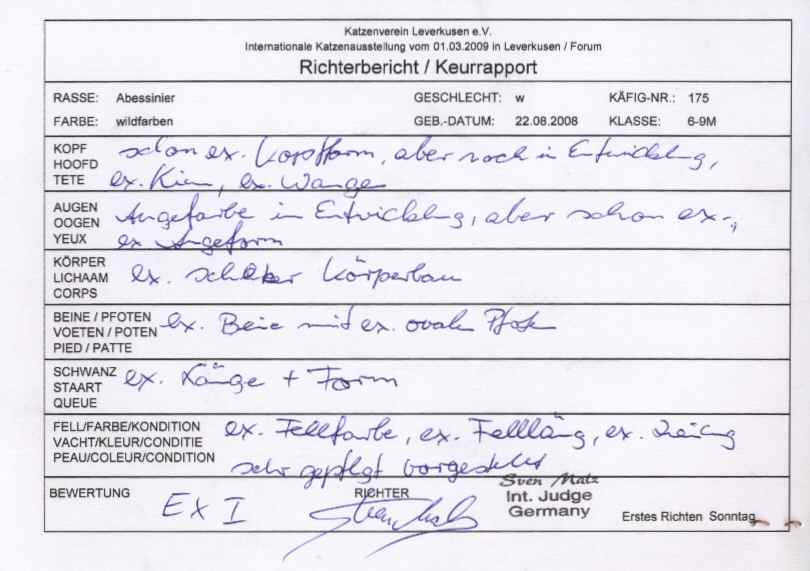 Katzenverein Leverkusen e.V.
Internationale Katzenausstellung vom 01.03.2009 in Leverkusen / Forum
Richterbericht / Keurrapport
RASSE: Abessinier GESCHLECHT: w KÄFIG-NR.: 175
FARBE: wildfarben GEB.-DATUM: 22.08.2008 KLASSE: 6-9M
KOPF
HOOFD
TETE
schon ex. Kopfform, aber noch in Entwicklung,
ex. Kinn, ex. Wangen
AUGEN
OOGEN
YEUX
Augenfarbe in Entwicklung, aber schon ex.,
ex Augenform
KÖRPER
LICHAAM
CORPS
ex. schlanker Körperbau
BEINE / PFOTEN
VOETEN / POTEN
PIED / PATTE
ex. Beine mit ex. ovalen Pfoten
SCHWANZ
STAART
QUEUE
ex. Länge + Form
FELL/FARBE/KONDITION
VACHT/KLEUR/CONDITIE
PEAU/COLEUR/CONDITION
ex. Fellfarbe, ex. Felllänge, ex.
sehr gepflegt vorgestellt
BEWERTUNG
Ex I
RICHTER
Sven Matz
Int. Judge
Germany
Erstes Richten Sonntag